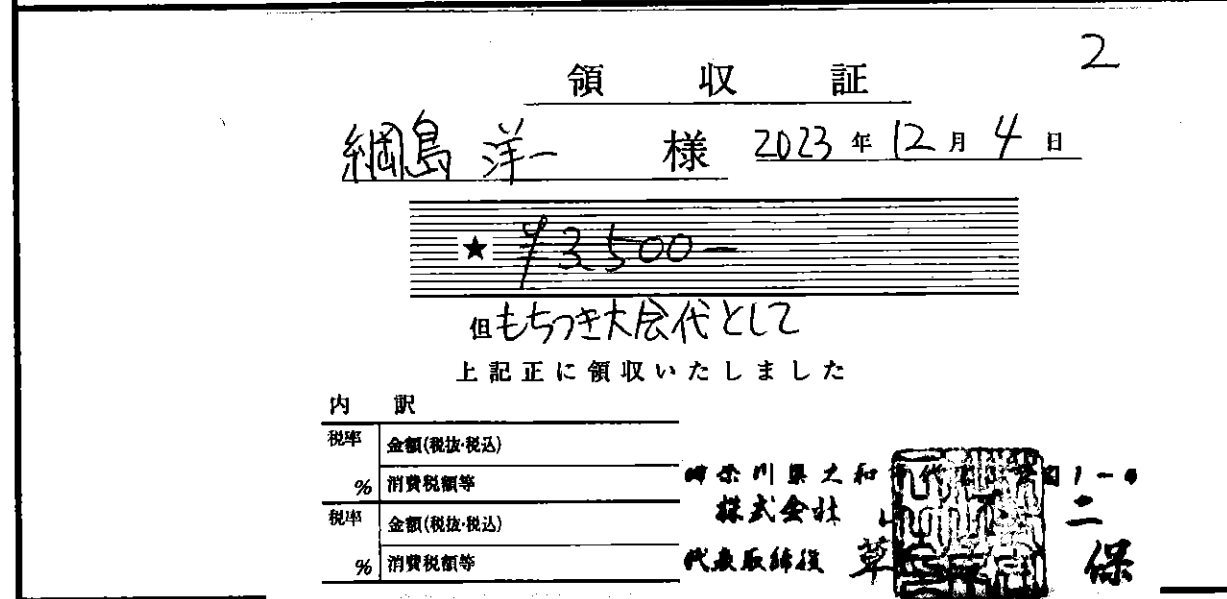 2
領 収 証
綱島 洋一 様 2023 年 12 月 4 日
★ ¥3,500-
但 もちつき大会代として
上記正に領収いたしました
内 訳
税率 金額(税抜・税込)
% 消費税額等
税率 金額(税抜・税込)
% 消費税額等
神奈川県大和市
株式会社
代表取締役